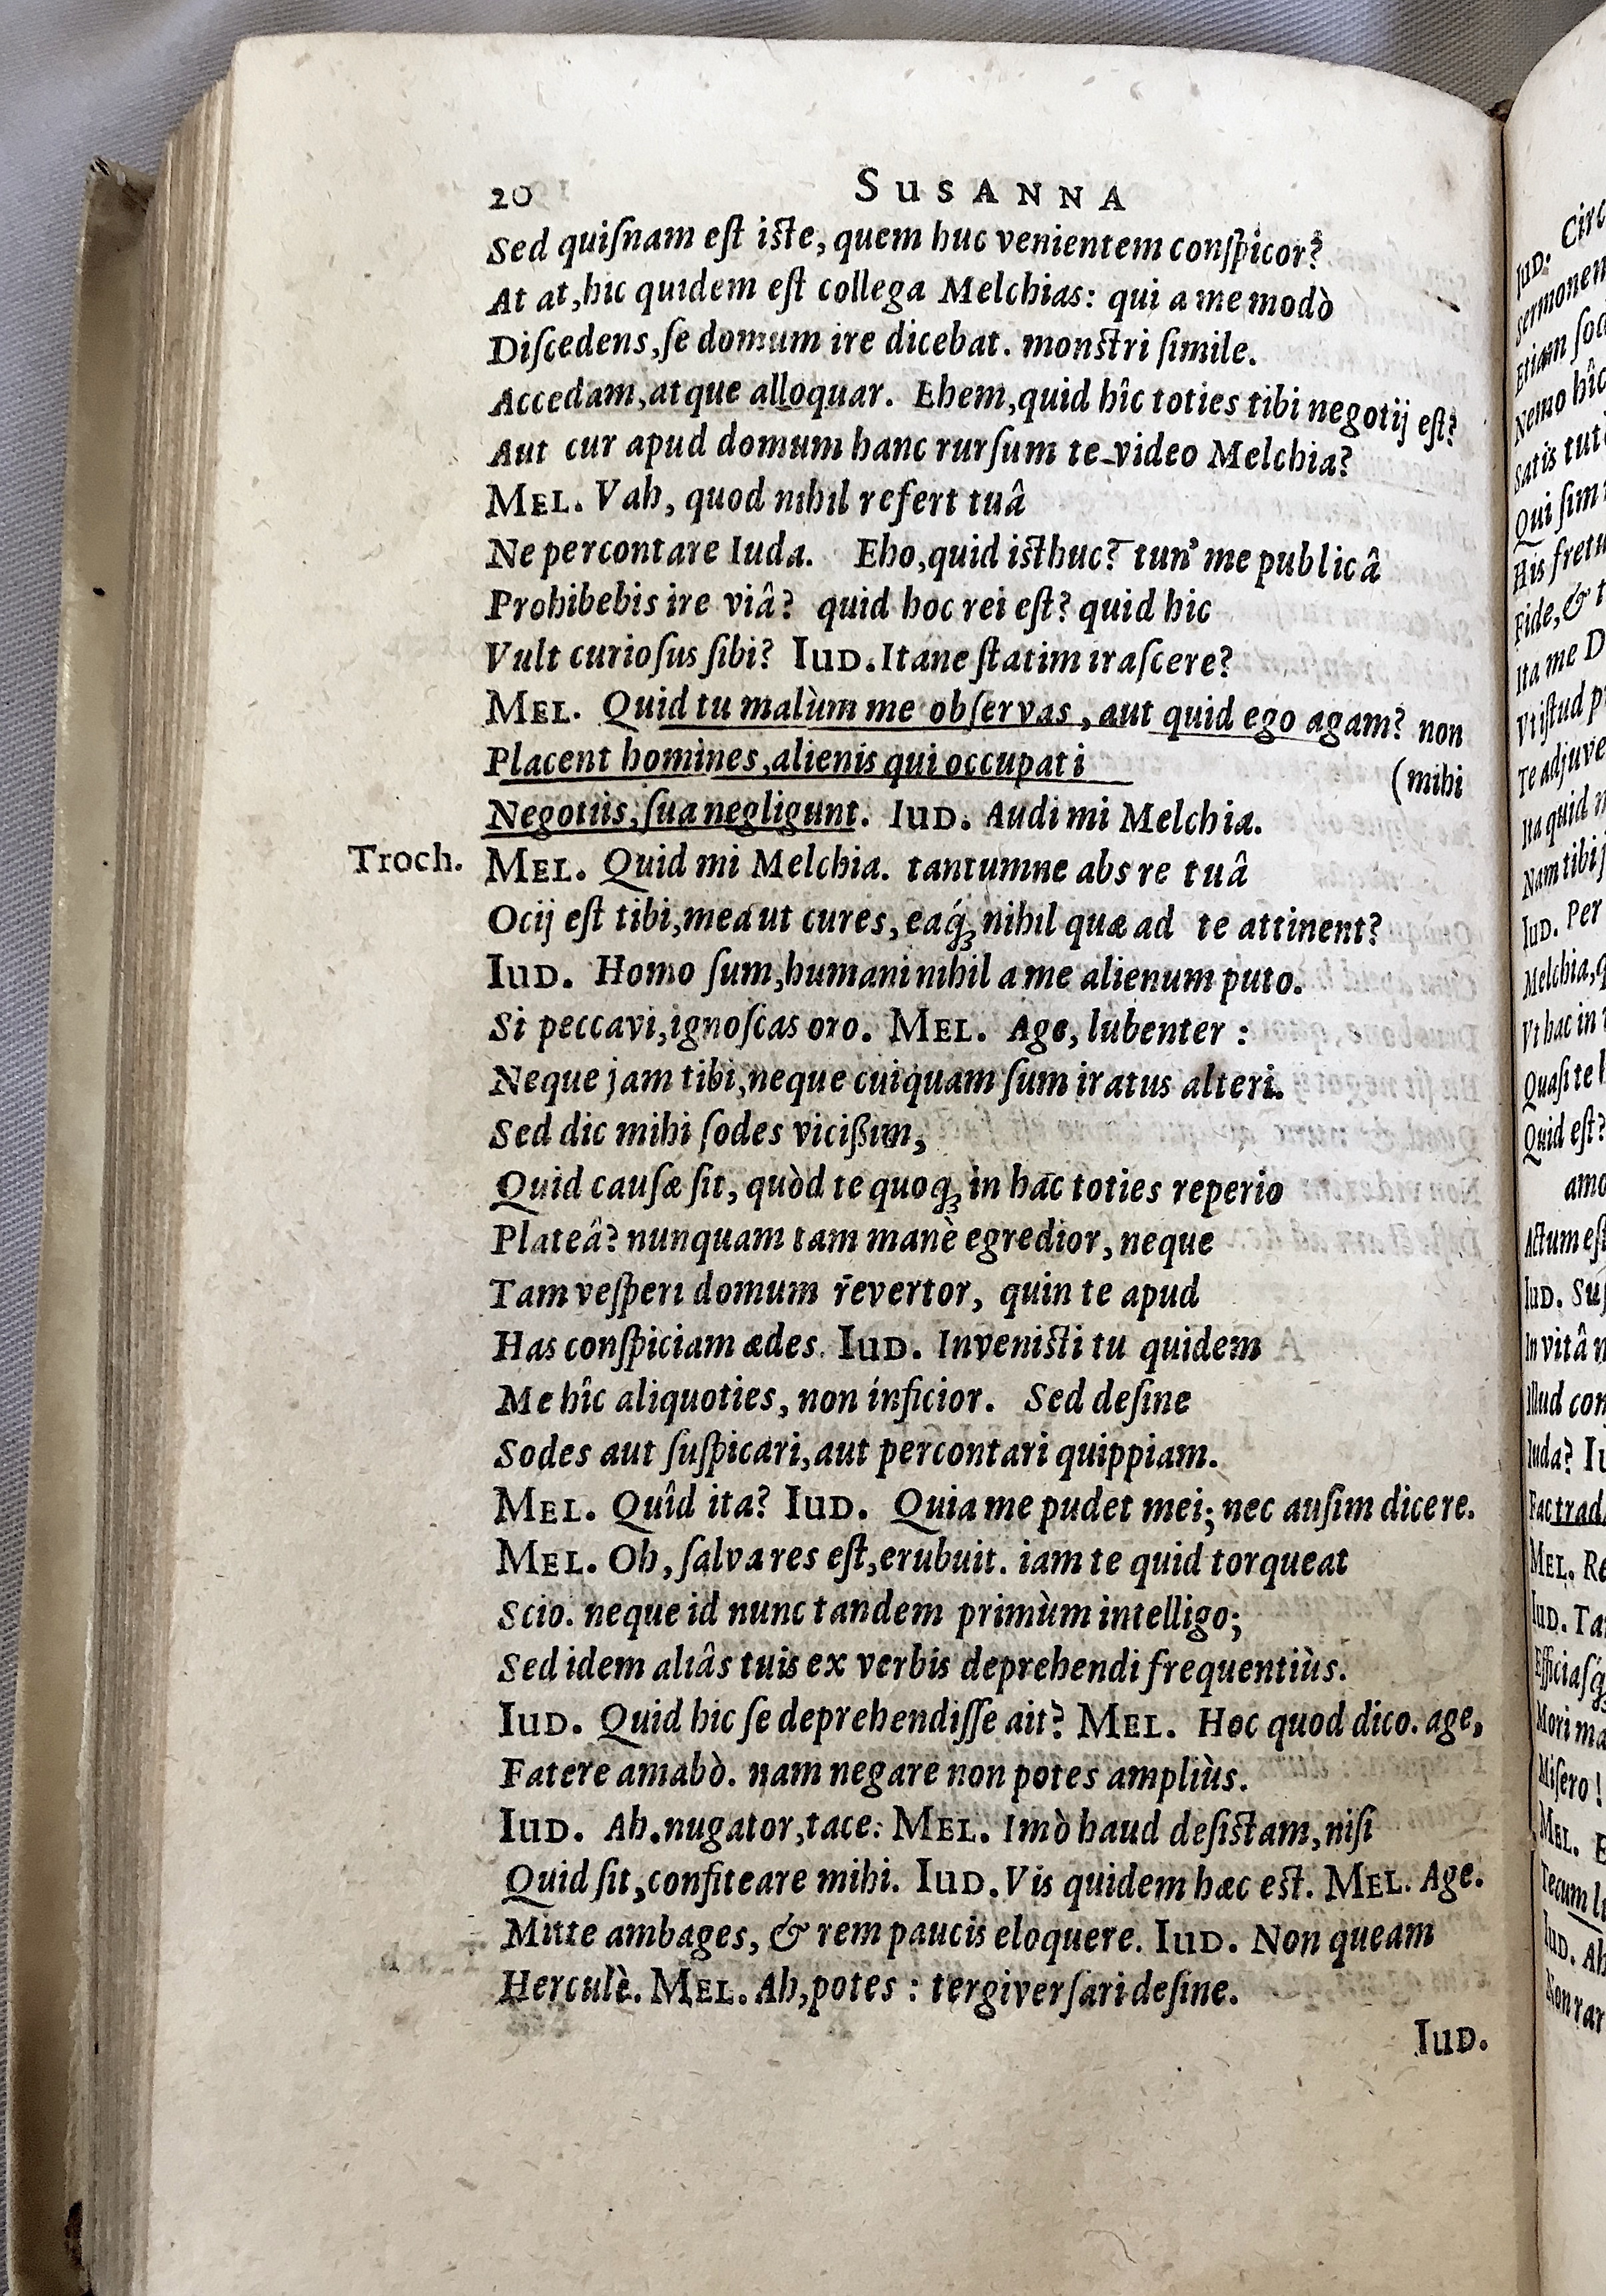 20 SUSANNA
Sed quiſnam eſt iſte, quem huc venientem conſpicor?
At at, hic quidem eſt collega Melchias: qui a me modò
Diſcedens, ſe domum ire dicebat. monſtri ſimile.
Accedam, atque alloquar. Ehem, quid hîc toties tibi negotij eſt?
Aut cur apud domum hanc rurſum te video Melchia?
MEL. Vah, quod nihil refert tuâ
Ne percontare Iuda. Eho, quid iſthuc? tun' me publicâ
Prohibebis ire viâ? quid hoc rei eſt? quid hic
Vult curioſus ſibi? IUD. Itane ſtatim iraſcere?
MEL. Quid tu malùm me obſervas, aut quid ego agam? non
Placent homines, alienis qui occupati (mihi
Negotiis, ſua negligunt. IUD. Audi mi Melchia.
Troch. MEL. Quid mi Melchia. tantumne abs re tuâ
Ocij eſt tibi, mea ut cures, eaq́ꝫ nihil quæ ad te attinent?
IUD. Homo ſum, humani nihil a me alienum puto.
Si peccavi, ignoſcas oro. MEL. Age, lubenter:
Neque jam tibi, neque cuiquam ſum iratus alteri.
Sed dic mihi ſodes vicißim,
Quid cauſæ ſit, quòd te quoqꝫ in hac toties reperio
Plateâ? nunquam tam manè egredior, neque
Tam veſperi domum revertor, quin te apud
Has conſpiciam ædes. IUD. Inveniſti tu quidem
Me hîc aliquoties, non inficior. Sed deſine
Sodes aut ſuſpicari, aut percontari quippiam.
MEL. Quîd ita? IUD. Quia me pudet mei; nec auſim dicere.
MEL. Oh, ſalva res eſt, erubuit. iam te quid torqueat
Scio. neque id nunc tandem primùm intelligo;
Sed idem aliâs tuis ex verbis deprehendi frequentiùs.
IUD. Quid hic ſe deprehendiſſe ait? MEL. Hoc quod dico. age,
Fatere amabò. nam negare non potes ampliùs.
IUD. Ah. nugator, tace: MEL. Imò haud deſiſtam, niſi
Quid ſit, confiteare mihi. IUD. Vis quidem hæc eſt. MEL. Age.
Mitte ambages, & rem paucis eloquere. IUD. Non queam
Herculè. MEL. Ah, potes: tergiverſari deſine.
IUD.